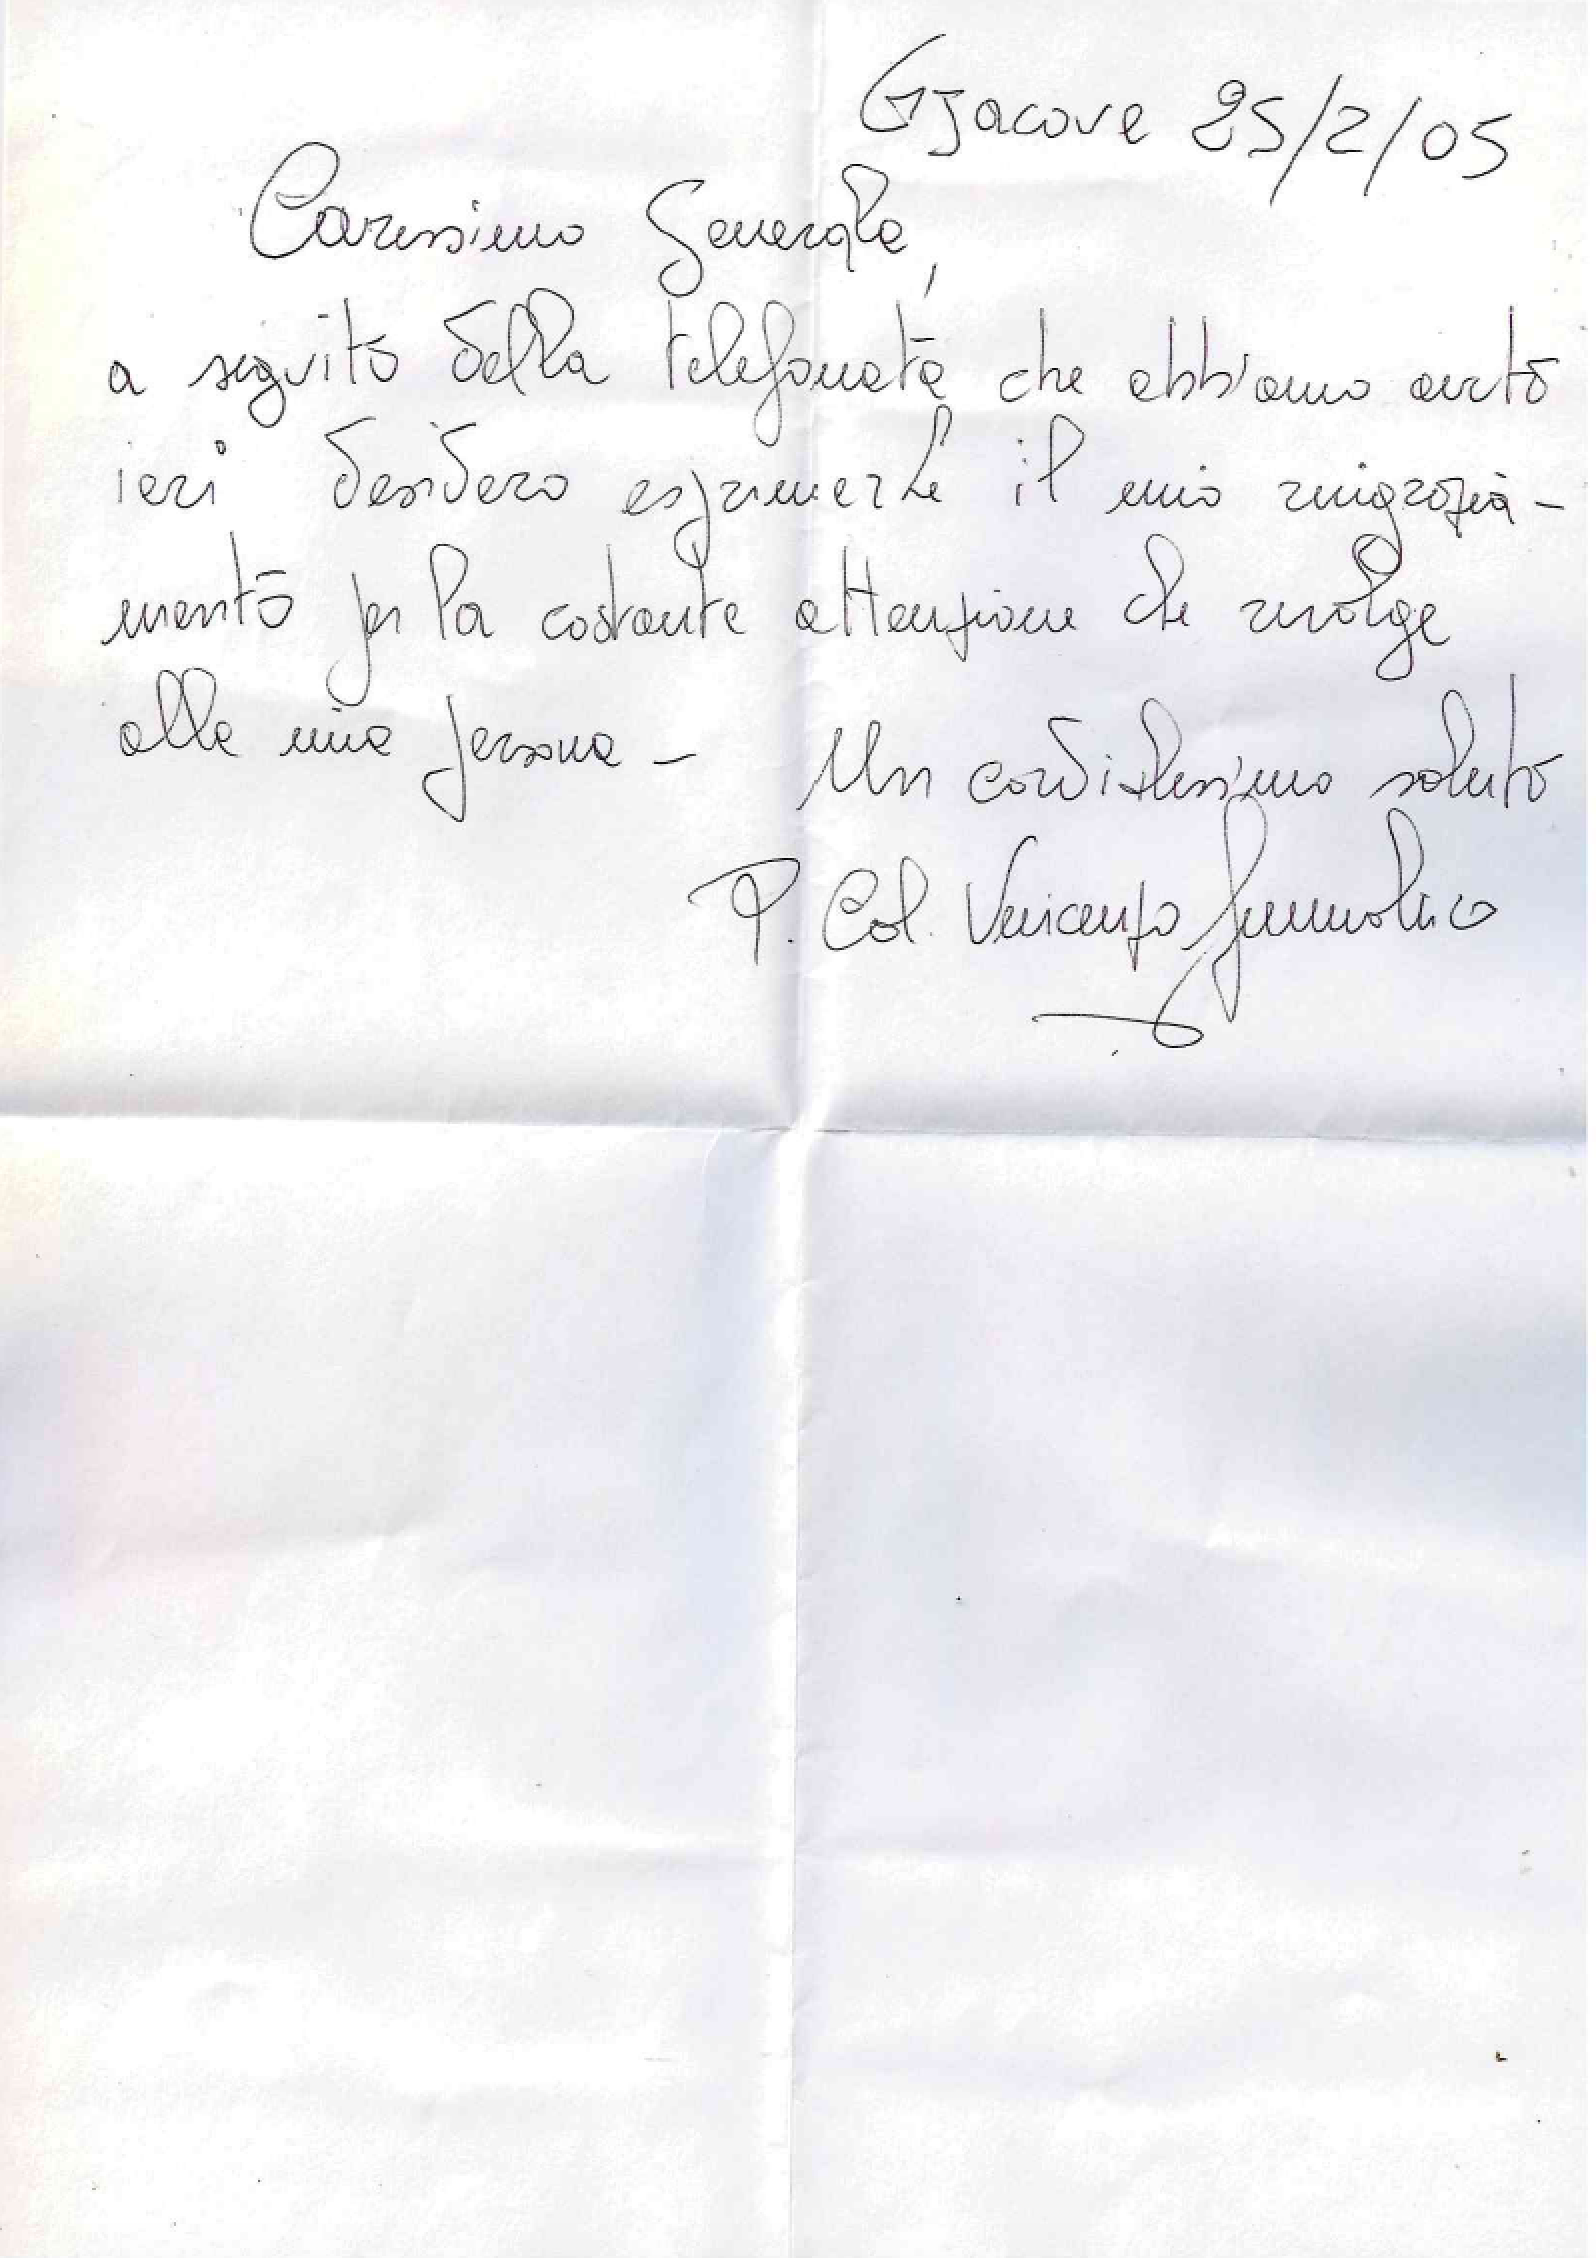 Gjacove 25/2/05
Carissimo Generale,
a seguito della telefonata che abbiamo avuto
ieri desidero esprimerLe il mio ringrazia-
mento per la costante attenzione che rivolge
alla mia persona - Un cordialissimo saluto
T. Col. Vincenzo